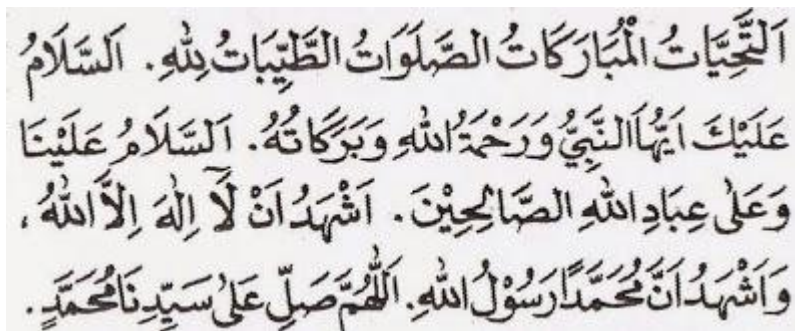 اَلتَّحِيَّاتُ الْمُبَارَكَاتُ الصَّلَوَاتُ الطَّيِّبَاتُ لِلّٰهِ. اَلسَّلَامُ
عَلَيْكَ اَيُّهَاالنَّبِيُّ وَرَحْمَةُ اللّٰهِ وَبَرَكَاتُهُ. اَلسَّلَامُ عَلَيْنَا
وَعَلٰى عِبَادِ اللّٰهِ الصَّالِحِيْنَ. اَشْهَدُ اَنْ لَآ اِلٰهَ اِلَّا اللّٰهُ،
وَاَشْهَدُ اَنَّ مُحَمَّدًا رَسُوْلُ اللّٰهِ. اَللّٰهُمَّ صَلِّ عَلٰى سَيِّدِنَا مُحَمَّدٍ.